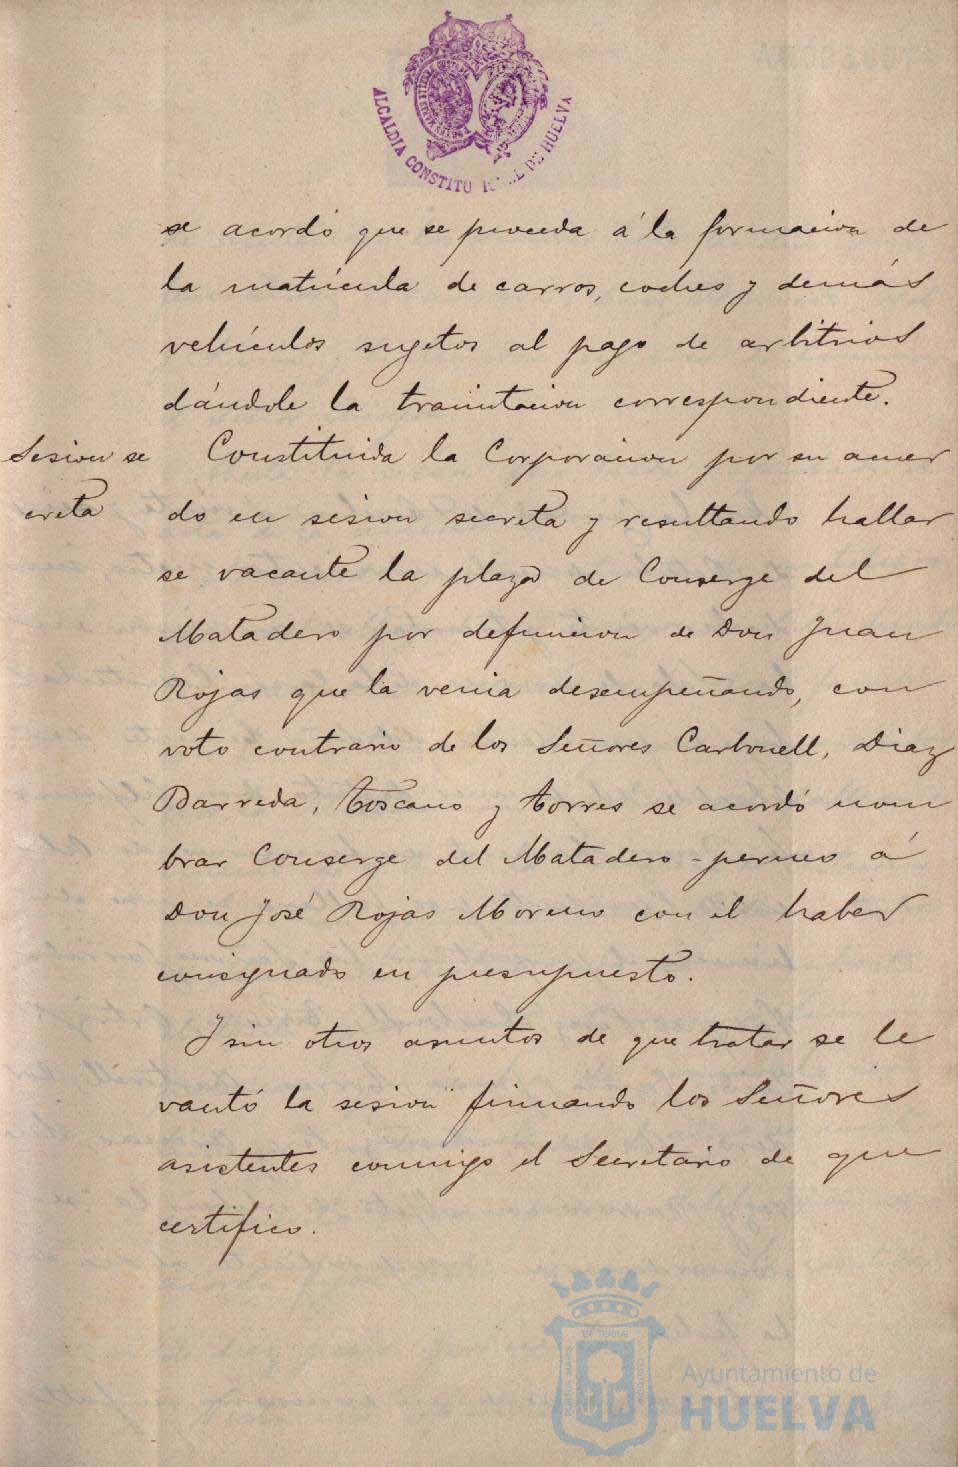 ALCALDIA CONSTITU DE HUELVA
se acordó que se proceda á la formacion de
la matrícula de carros, coches y demás
vehículos sujetos al pago de arbitrios
dándole la tramitacion correspondiente.
Sesion se
creta
Constituida la Corporacion por su acuer
do en sesion secreta y resultando hallar
se vacante la plaza de Conserge del
Matadero por defuncion de Don Juan
Rojas que la venia desempeñando, con
voto contrario de los Señores Carbonell, Diaz
Barreda, Toscano y Torres se acordó nom
brar Conserge del Matadero - á
Don José Rojas Moreno con el haber
consignado en presupuesto.
Y sin otros asuntos de que tratar se le
vantó la sesion firmando los Señores
asistentes conmigo el Secretario de que
certifico.
Ayuntamiento de
HUELVA